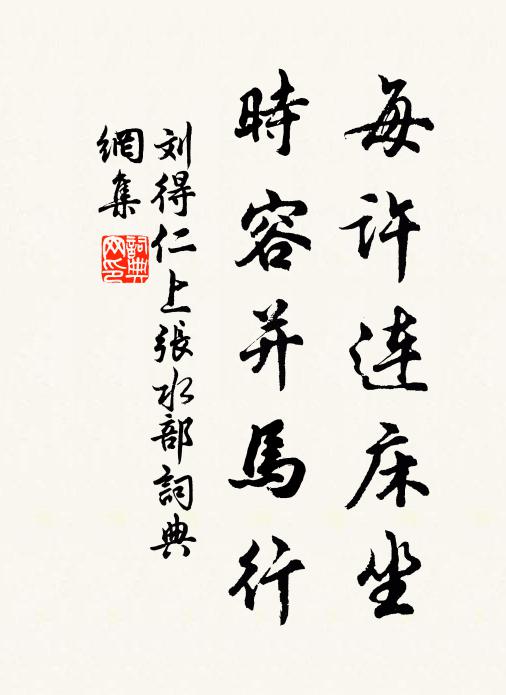 每许連床坐
時容并馬行
刘得仁上張水部詞典
網集
詞典
网印